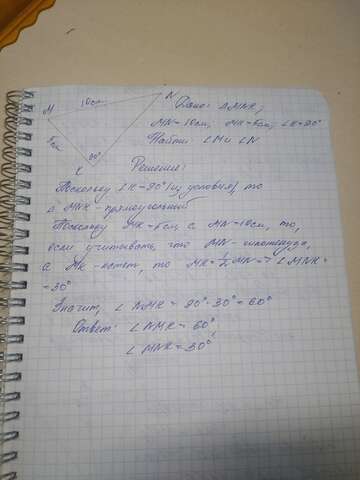 M
N
10см
5см
K
90°
Дано: △MNK;
MN=10см; MK=5см; ∠K=90°
Найти: ∠M и ∠N
Решение:
Поскольку ∠K=90° (из условия), то
△ MNK - прямоугольный
Поскольку MK=5см, а MN=10см, то,
если учитывать, что MN - гипотенуза,
а MK - катет, то MK=½MN=> ∠MNK=
=30°
Значит, ∠NMK = 90°-30°=60°
Ответ: ∠NMK = 60°
∠MNK=30°